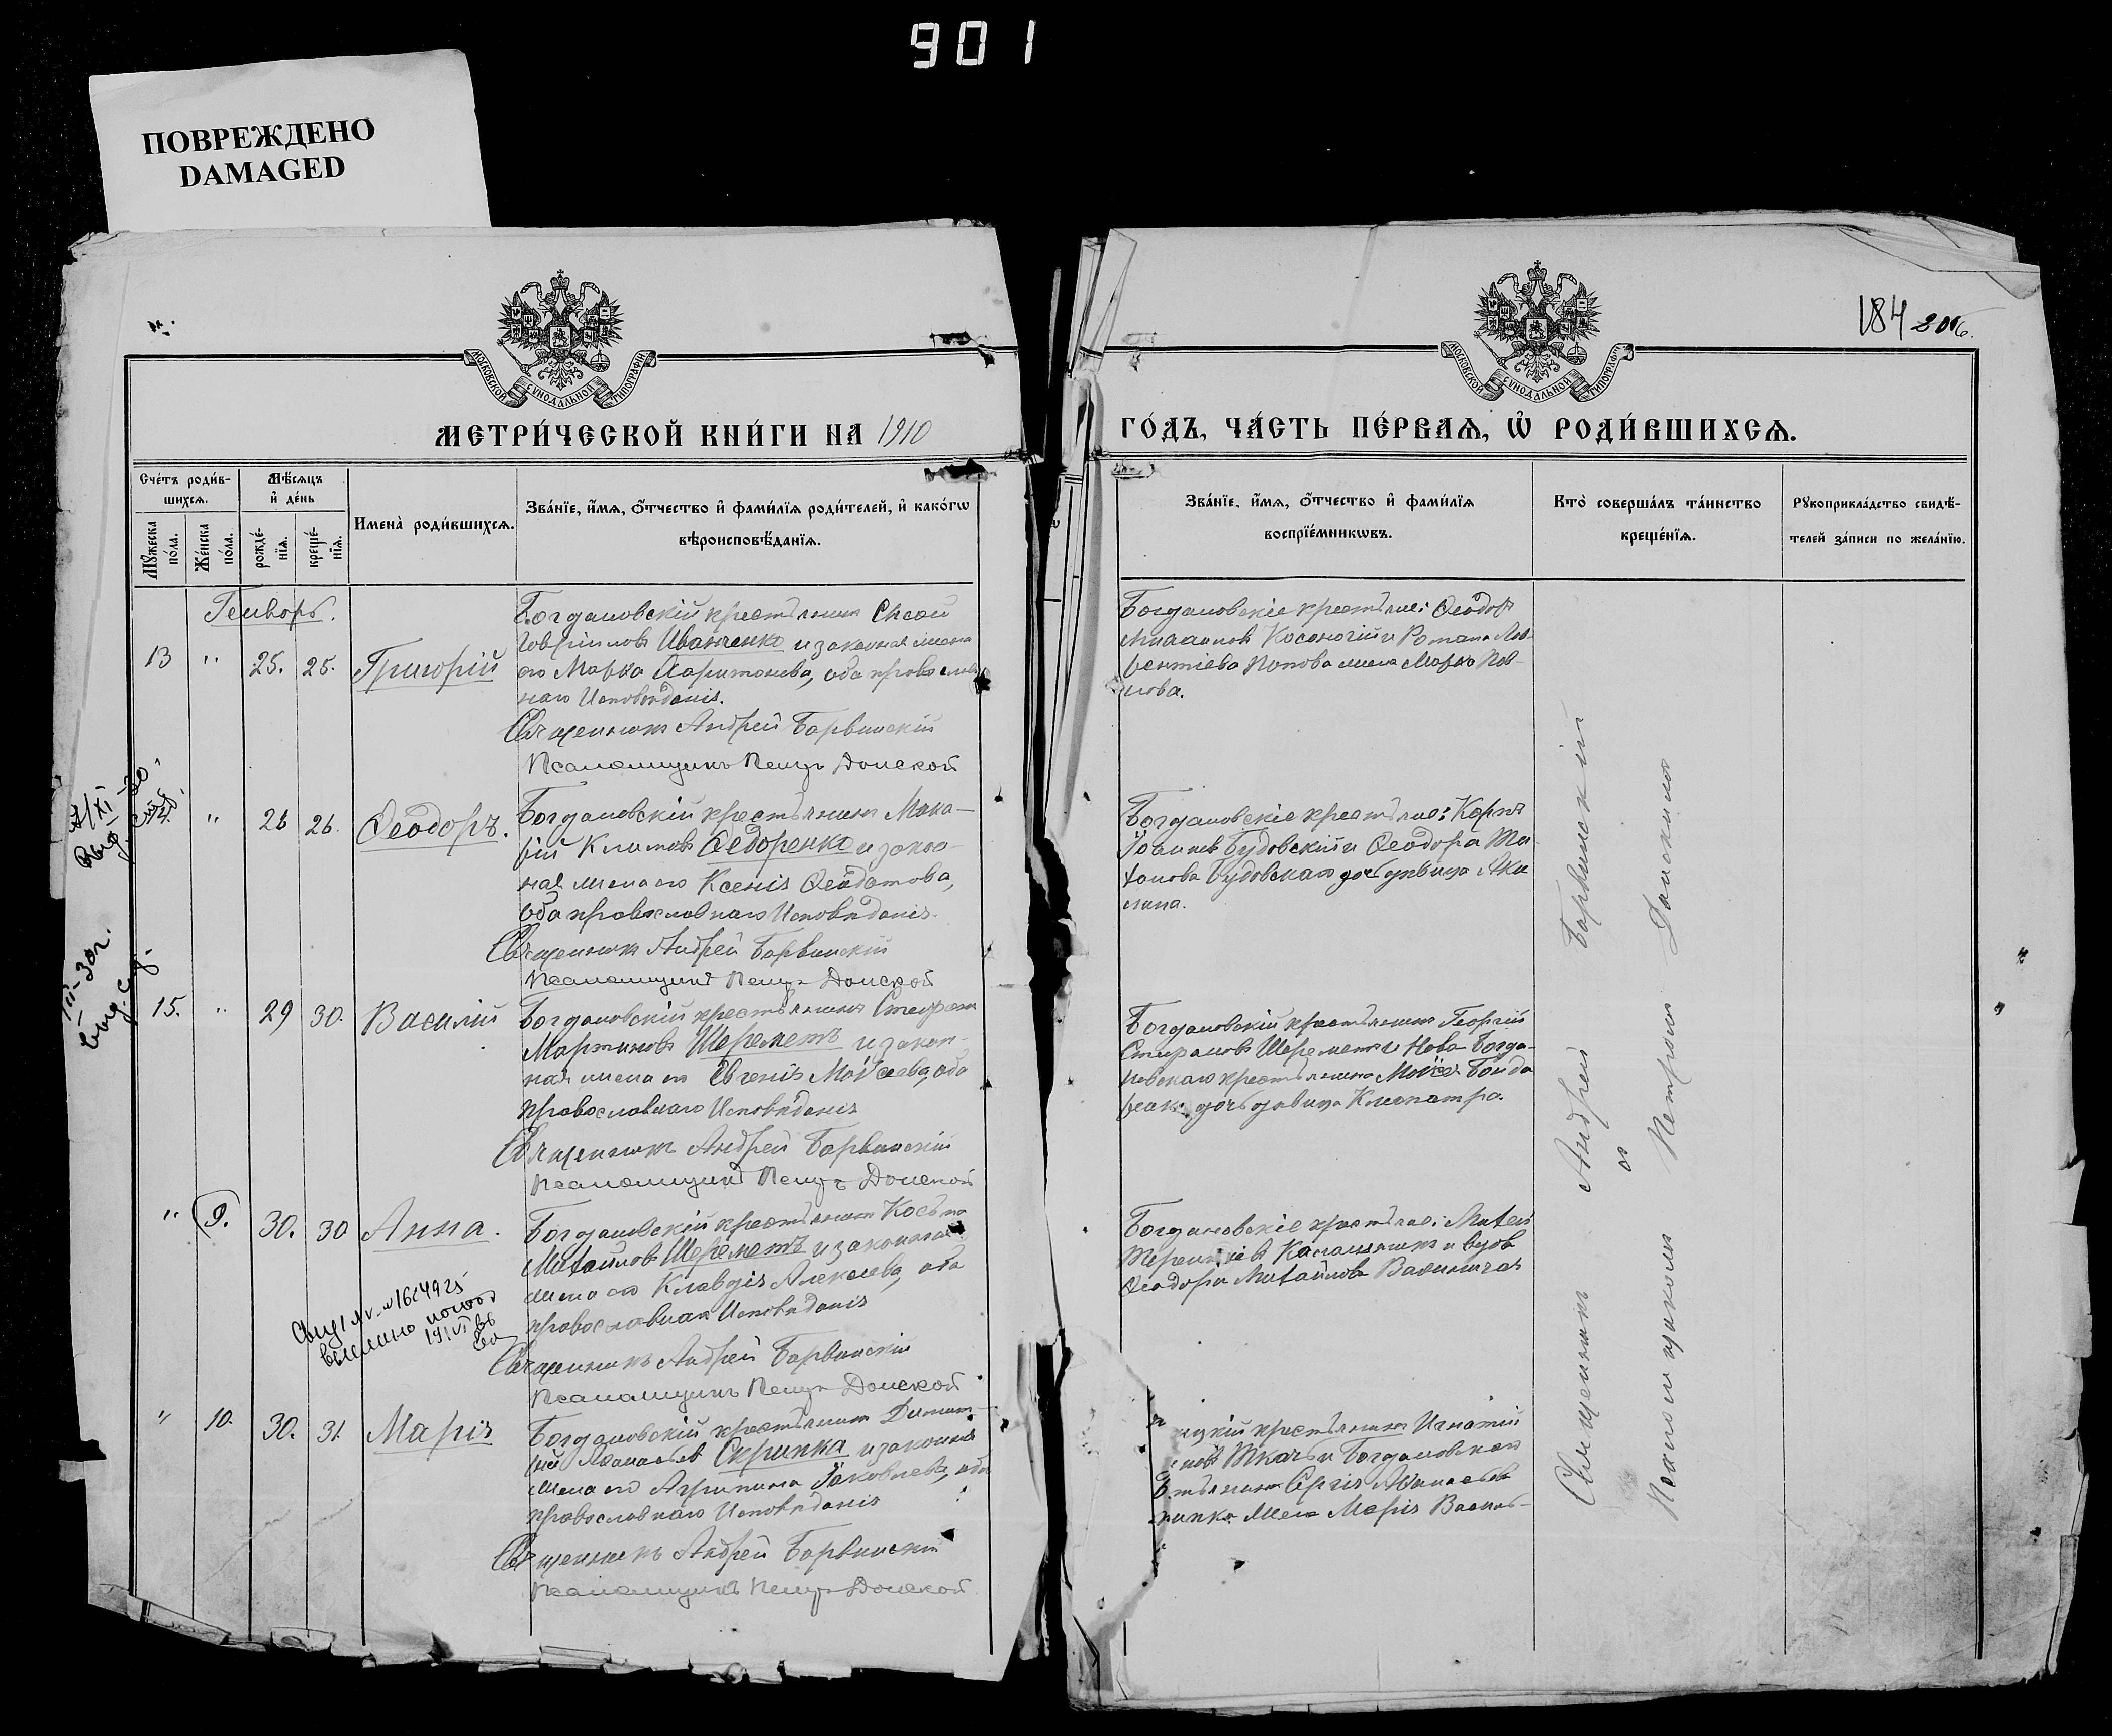 901
ПОВРЕЖДЕНО
DAMAGED
184 206.
МОСКОВСКОЙ СѴНОДАЛЬНОЙ ТИПОГРАФІИ
МОСКОВСКОЙ СѴНОДАЛЬНОЙ ТИПОГРАФІИ
МЕТРИ́ЧЕСКОЙ КНИ́ГИ НА 1910
ГО́ДЪ, ЧА́СТЬ ПЕ́РВАѦ, Ѡ҆ РОДИ́ВШИХСѦ.
Сче́тъ роди́в-
шихсѧ.
Мꙋ́жеска по́ла.
Же́нска по́ла.
Мѣ́сѧцъ
и҆ де́нь
рожде́-
нїѧ.
креще́-
нїѧ.
Имена̀ роди́вшихсѧ.
Зва́нїе, и҆́мѧ, ѻ҆́тчество и҆ фами́лїѧ роди́телей, и҆ како́гѡ
вѣроисповѣ́данїѧ.
Зва́нїе, и҆́мѧ, ѻ҆́тчество и҆ фами́лїѧ
воспрїе́мникѡвъ.
Кто̀ соверша́лъ та́инство
креще́нїѧ.
Рꙋкоприкла́дство свидѣ́-
телей за́писи по жела́нїю.
Генварь.
13 " 25. 25. Григорій
Богдановскій крестьянинъ
Гавріиловъ Иванченко и законная жена
его Марѳа Харитонова, оба православ
наго Исповѣданія.
Священникъ Андрей Барвинскій
Псаломщикъ Петръ Донской
Богдановскіе крестьяне: Ѳеодоръ
Косоногій и Романа Лав-
рентіева Попова жена Марѳа Пав-
лова.
" 26 26. Ѳеодоръ.
Богдановскій крестьянинъ Мака-
рій Климовъ Ѳедоренко и закон-
ная жена его Ксенія Ѳеодотова,
оба православнаго Исповѣданія.
Священникъ Андрей Барвинскій
Псаломщикъ Петръ Донской
Богдановскіе крестьяне: Карпъ
Іоанновъ Будовскій и Ѳеодора Ти-
хонова Будовскаго дочь дѣвица Аки
лина.
15. " 29 30. Василій
Богдановскій крестьянинъ Стефанъ
Мартиновъ Шереметъ и закон-
ная жена его Евгенія Моѵсеева, оба
православнаго Исповѣданія
Священникъ Андрей Барвинскій
Псаломщикъ Петръ Донской
Богдановскій крестьянинъ Георгій
Стефановъ Шереметъ и Ново-Богда-
новскаго крестьянина Моѵсея Бонда
ренка дочь дѣвица Клеопатра.
" 9. 30. 30 Анна.
Богдановскій крестьянинъ Косьма
Михайловъ Шереметъ и законная
жена его Клавдія Алексеева, оба
православнаго Исповѣданія
Священникъ Андрей Барвинскій
Псаломщикъ Петръ Донской
Богдановскіе крестьяне: Матвей
Терентіевъ и вдова
Ѳеодора Михайлова
" 10. 30. 31. Марія
Богдановскій крестьянинъ Димит-
рій Аѳанасьевъ Скрипка и законная
жена его Агрипина Іаковлева, оба
православнаго Исповѣданія
Священникъ Андрей Барвинскій
Псаломщикъ Петръ Донской
крестьянинъ Игнатій
Ткачь и Богдановскаго
Сергія Аѳанасьева
жена Марія Василь-
Священникъ Андрей Барвинскій
съ
Псаломщикомъ Петромъ Донскимъ